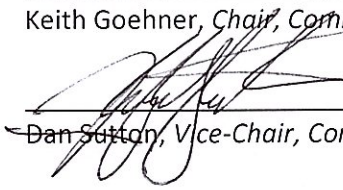 Keith Goehner, Chair, Com
Dan Sutton, Vice-Chair, Com